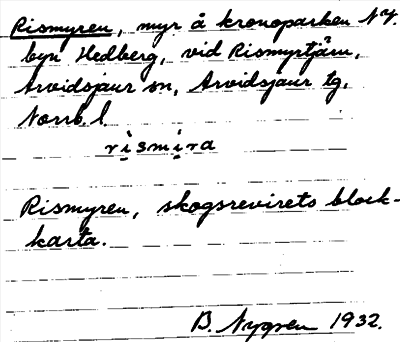 Rismyren, myr å kronoparken NV.
byn Hedberg, vid Rismyrtjärn,
Arvidsjaur sn, Arvidsjaur tg,
Norrb. l.
rismira
Rismyren, skogsrevirets block-
karta.
B. Nygren 1932.